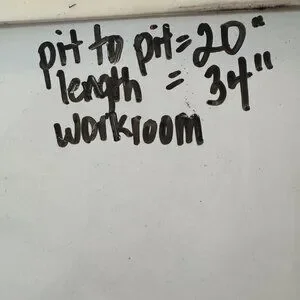 pit to pit=20"
length = 34"
workroom